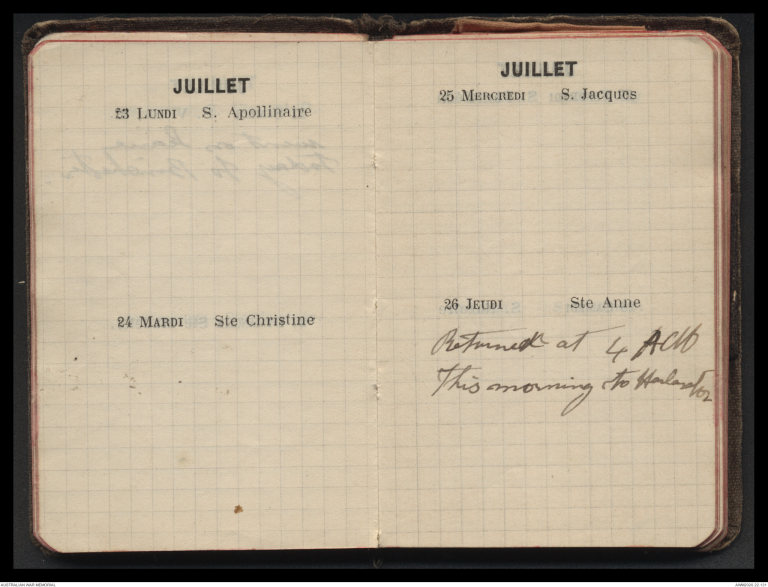 JUILLET
23 LUNDI S. Apollinaire
24 MARDI Ste Christine
JUILLET
25 MERCREDI S. Jacques
26 JEUDI Ste Anne
Returned at 4
This morning to
AUSTRALIAN WAR MEMORIAL